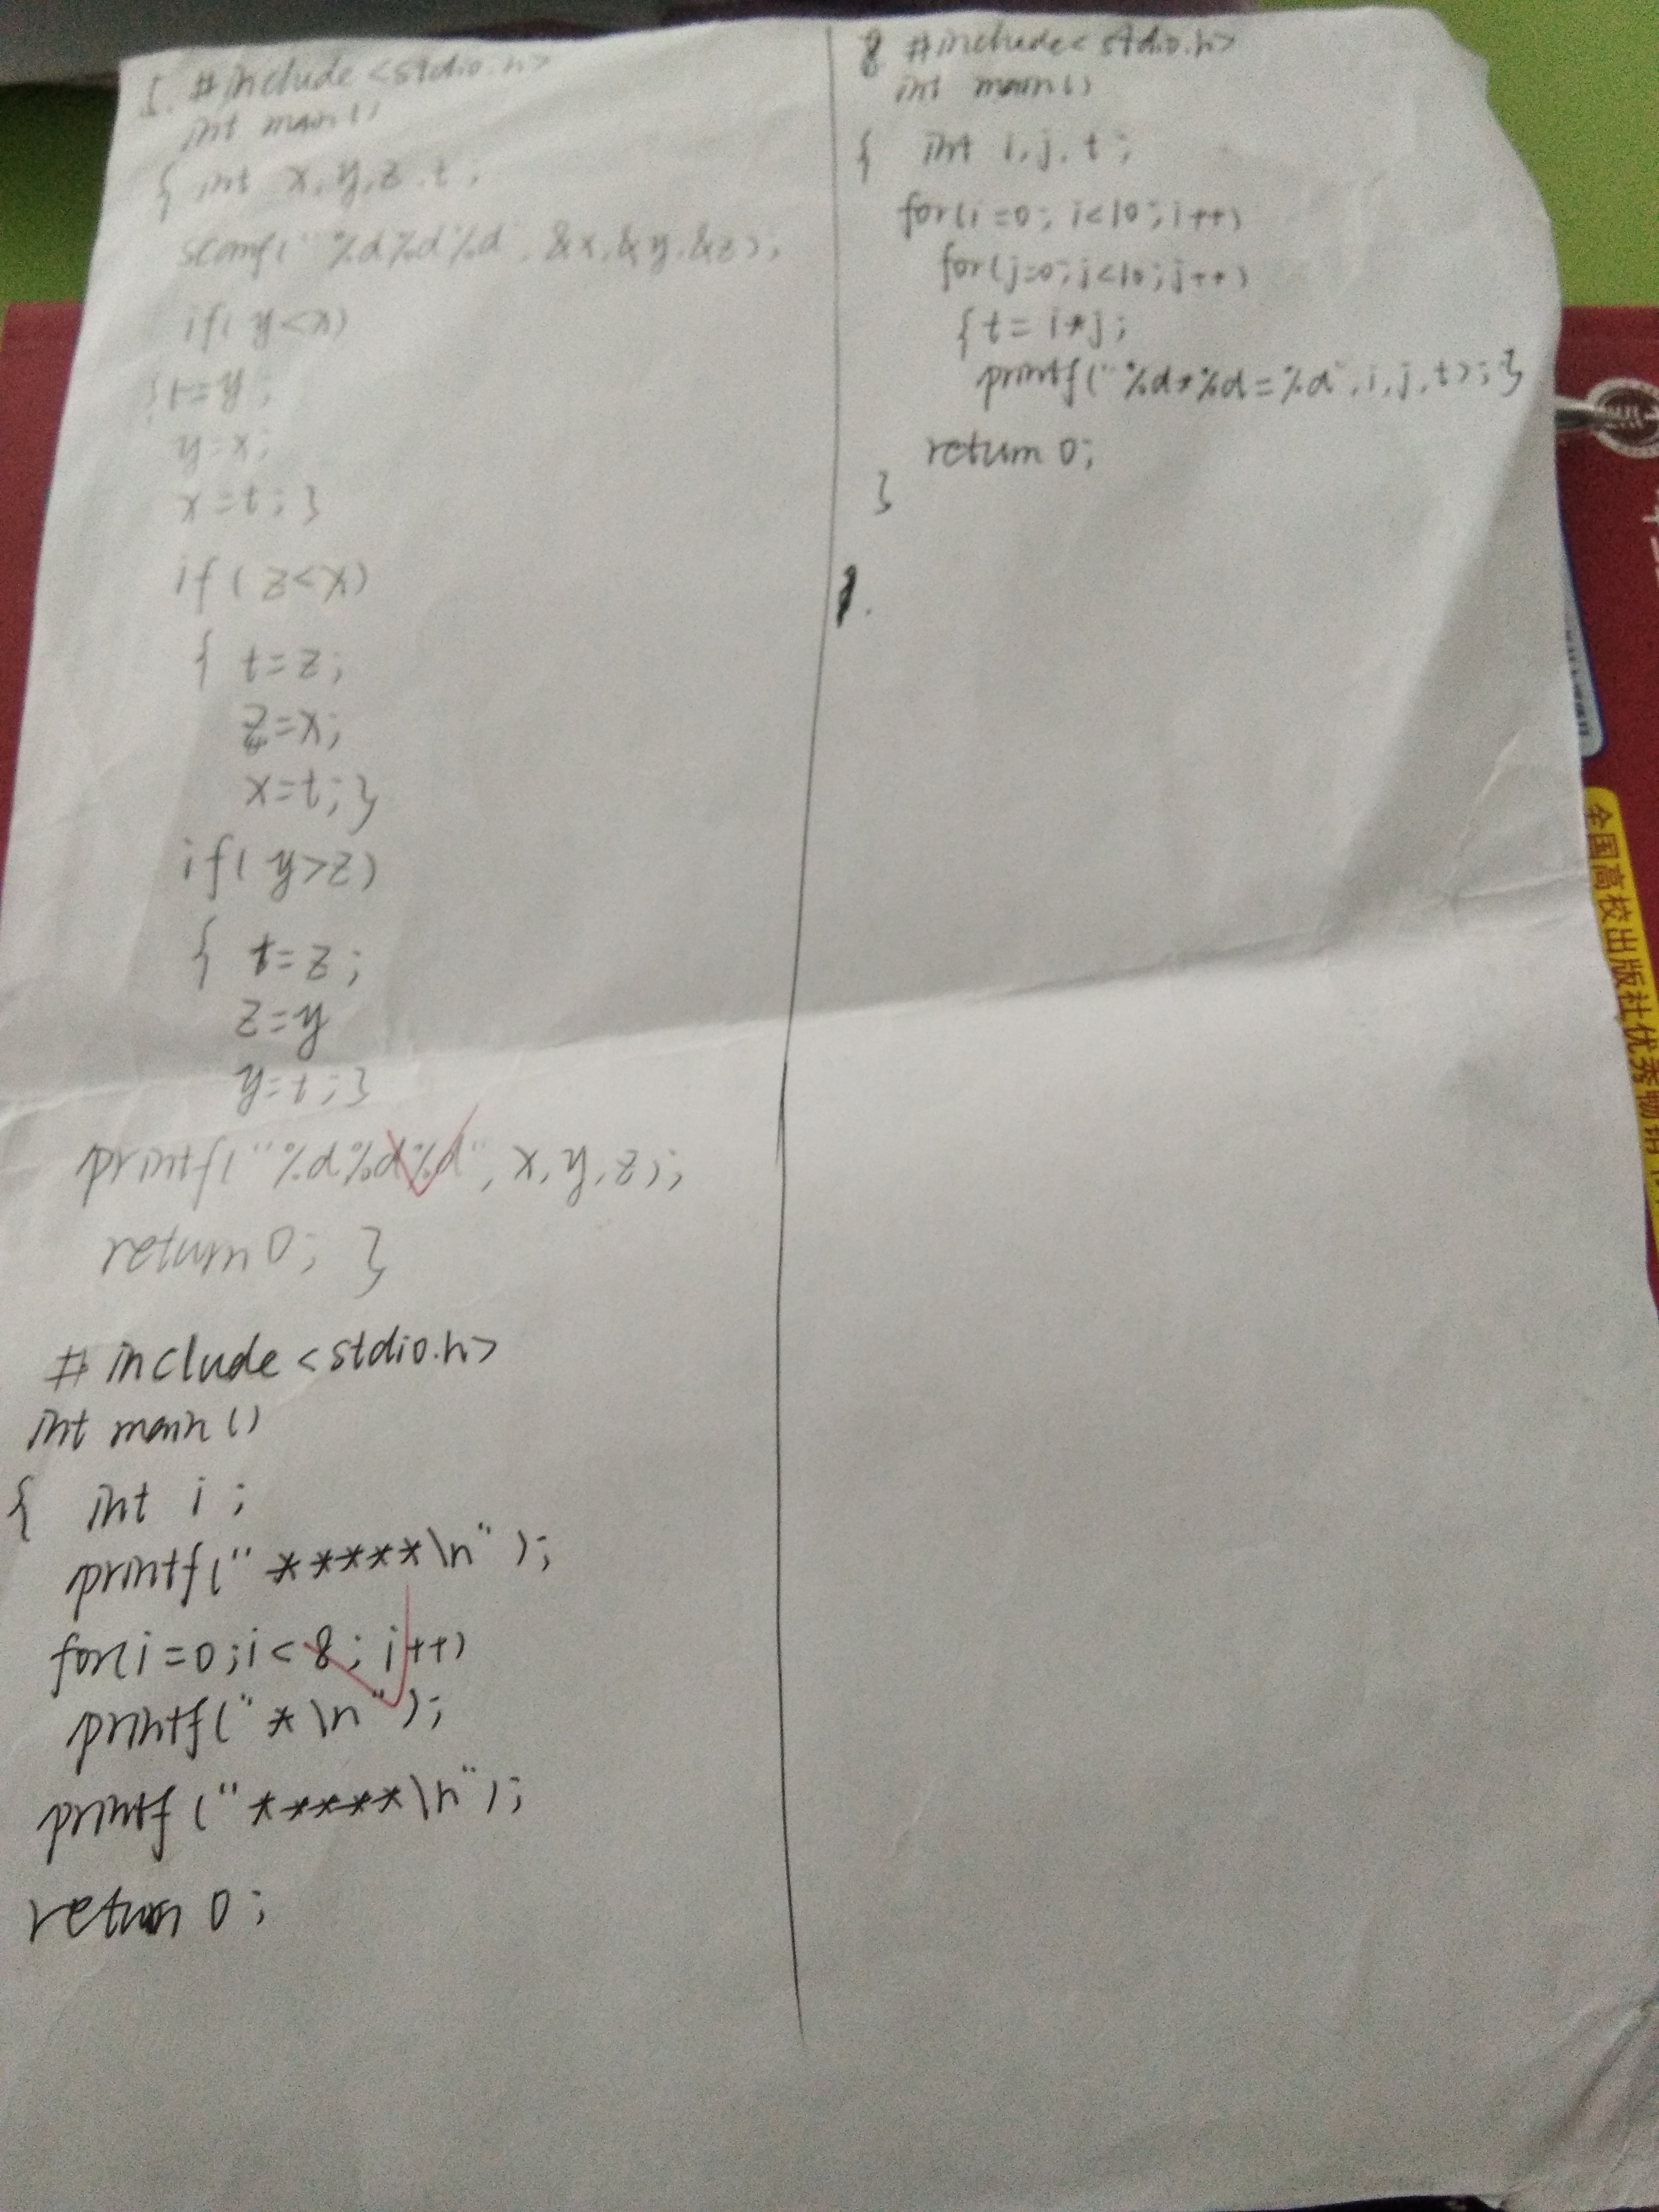 5. #include<stdio.h>
int main()
{ int x,y,z,t;
scanf("%d%d%d",&x,&y,&z);
if( y<x)
{t=y;
y=x;
x=t;}
if( z<x)
{ t=z;
z=x;
x=t;}
if( y>z)
{ t=z;
z=y
y=t;}
printf("%d%d%d",x,y,z);
return 0; }
#include<stdio.h>
int main()
{ int i;
printf("*****\n");
for(i=0;i<8;i++)
printf("*\n");
printf("*****\n");
return 0;
8 #include<stdio.h>
int main()
{ int i,j,t;
for(i=0;i<10;i++)
for(j=0;j<10;j++)
{t=i*j;
printf("%d*%d=%d",i,j,t);}
return 0;
}
1.
全国高校出版社优秀畅销